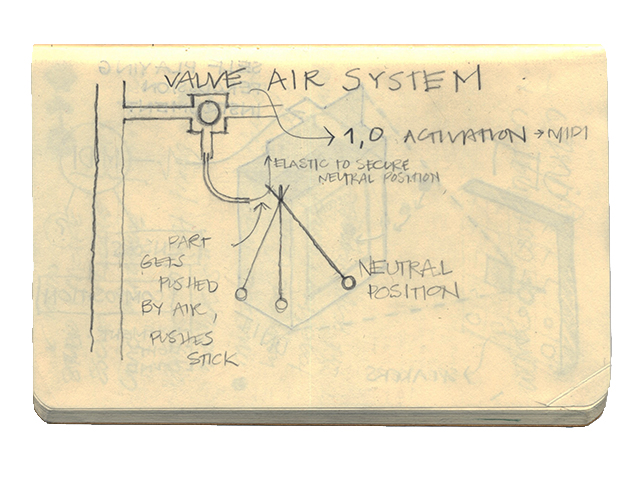 VALVE AIR SYSTEM
1,0 ACTIVATION → MIDI
ELASTIC TO SECURE
NEUTRAL POSITION
PART
GETS
PUSHED
BY AIR,
PUSHES
STICK
NEUTRAL
POSITION